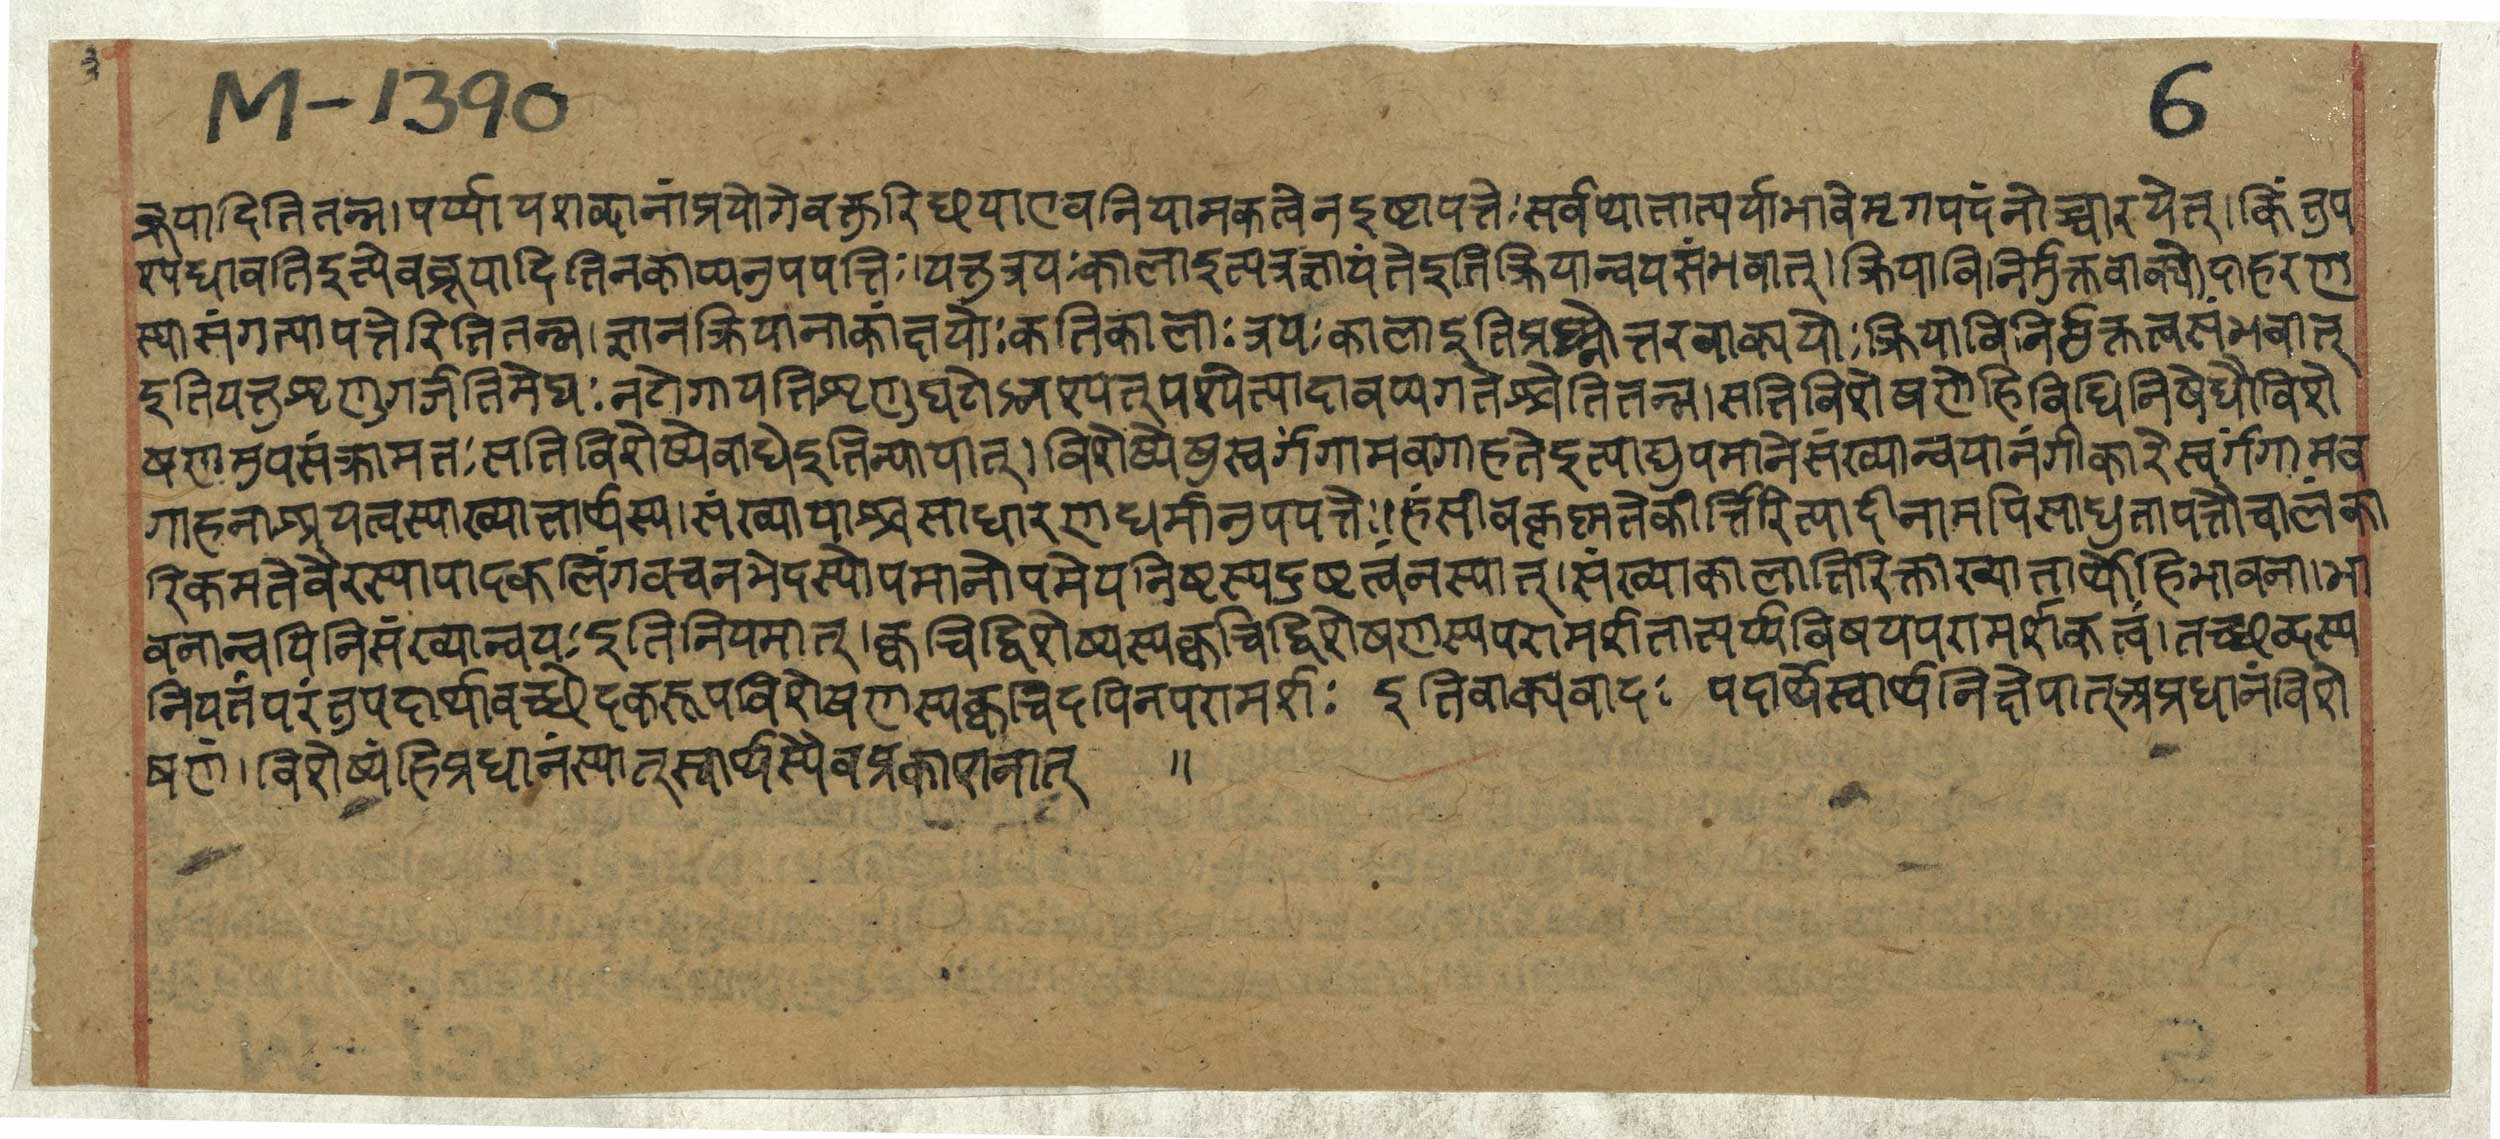 ३
M-1390
6
ब्रूयादितितन्न।पर्य्यायशब्दानांप्रयोगेवक्तुरिछयाएवनियामकत्वेनइष्टापत्तेःसर्वथातात्पर्याभावेमृगपदंनोच्चारयेत्।किंतुप
श्यधावतिइत्येवब्रूयादितिनकाप्यनुपपत्तिः।यत्तुत्रयःकालाइत्यत्रज्ञायंतेइतिक्रियान्वयसंभवात्।क्रियाविनिर्मुक्तवाक्योदाहरण
स्यासंगत्यापत्तेरितितन्न।ज्ञानक्रियानाकांक्षयोःकतिकालाःत्रयःकालाइतिप्रश्नोत्तरवाक्ययोःक्रियाविनिर्मुक्तत्वसंभवात्
इतियत्तुशृणुगर्जतिमेघःनटोगायतिशृणुघटोऽनश्यत्पश्येत्यादावप्यगतेश्चेतितन्न।सतिविशेषणेहिविधिनिषेधौविशे
षणमुपसंक्रामतःसतिविशेष्येबाधेइतिन्यायात्।विशेष्येषुस्वर्गंगामवगाहतेइत्याद्युपमानेसंख्यान्वयानंगीकारेस्वर्गंगामव
गाहनाश्रयत्वस्याख्यातार्थस्य।संख्यायाश्चसाधारणधर्मानुपपत्तेः।हंसीवकृष्णतेकीर्त्तिरित्यादीनामपिसाधुतापत्तौचालंका
रिकमतेवैरस्यापादकलिंगवचनभेदस्योपमानोपमेयनिष्टस्यदुष्टत्वंनस्यात्।संख्याकालातिरिक्ताख्यातार्थोहिभावना।भा
वनान्वयिनिसंख्यान्वयःइतिनियमात्।क्वचिद्विशेष्यस्यक्वचिद्विशेषणस्यपरामर्शतात्पर्य्यविषयपरामर्शकत्वं।तच्छब्दस्य
नियतंपरंतुपदार्थावच्छेदकरूपविशेषणस्यक्वचिदपिनपरामर्शः इतिवाक्यवादः पदार्थेस्वार्थनिक्षेपात्अप्रधानंविशे
षणं।विशेष्यंहिप्रधानंस्यात्स्वार्थस्यैवप्रकाशनात् ॥